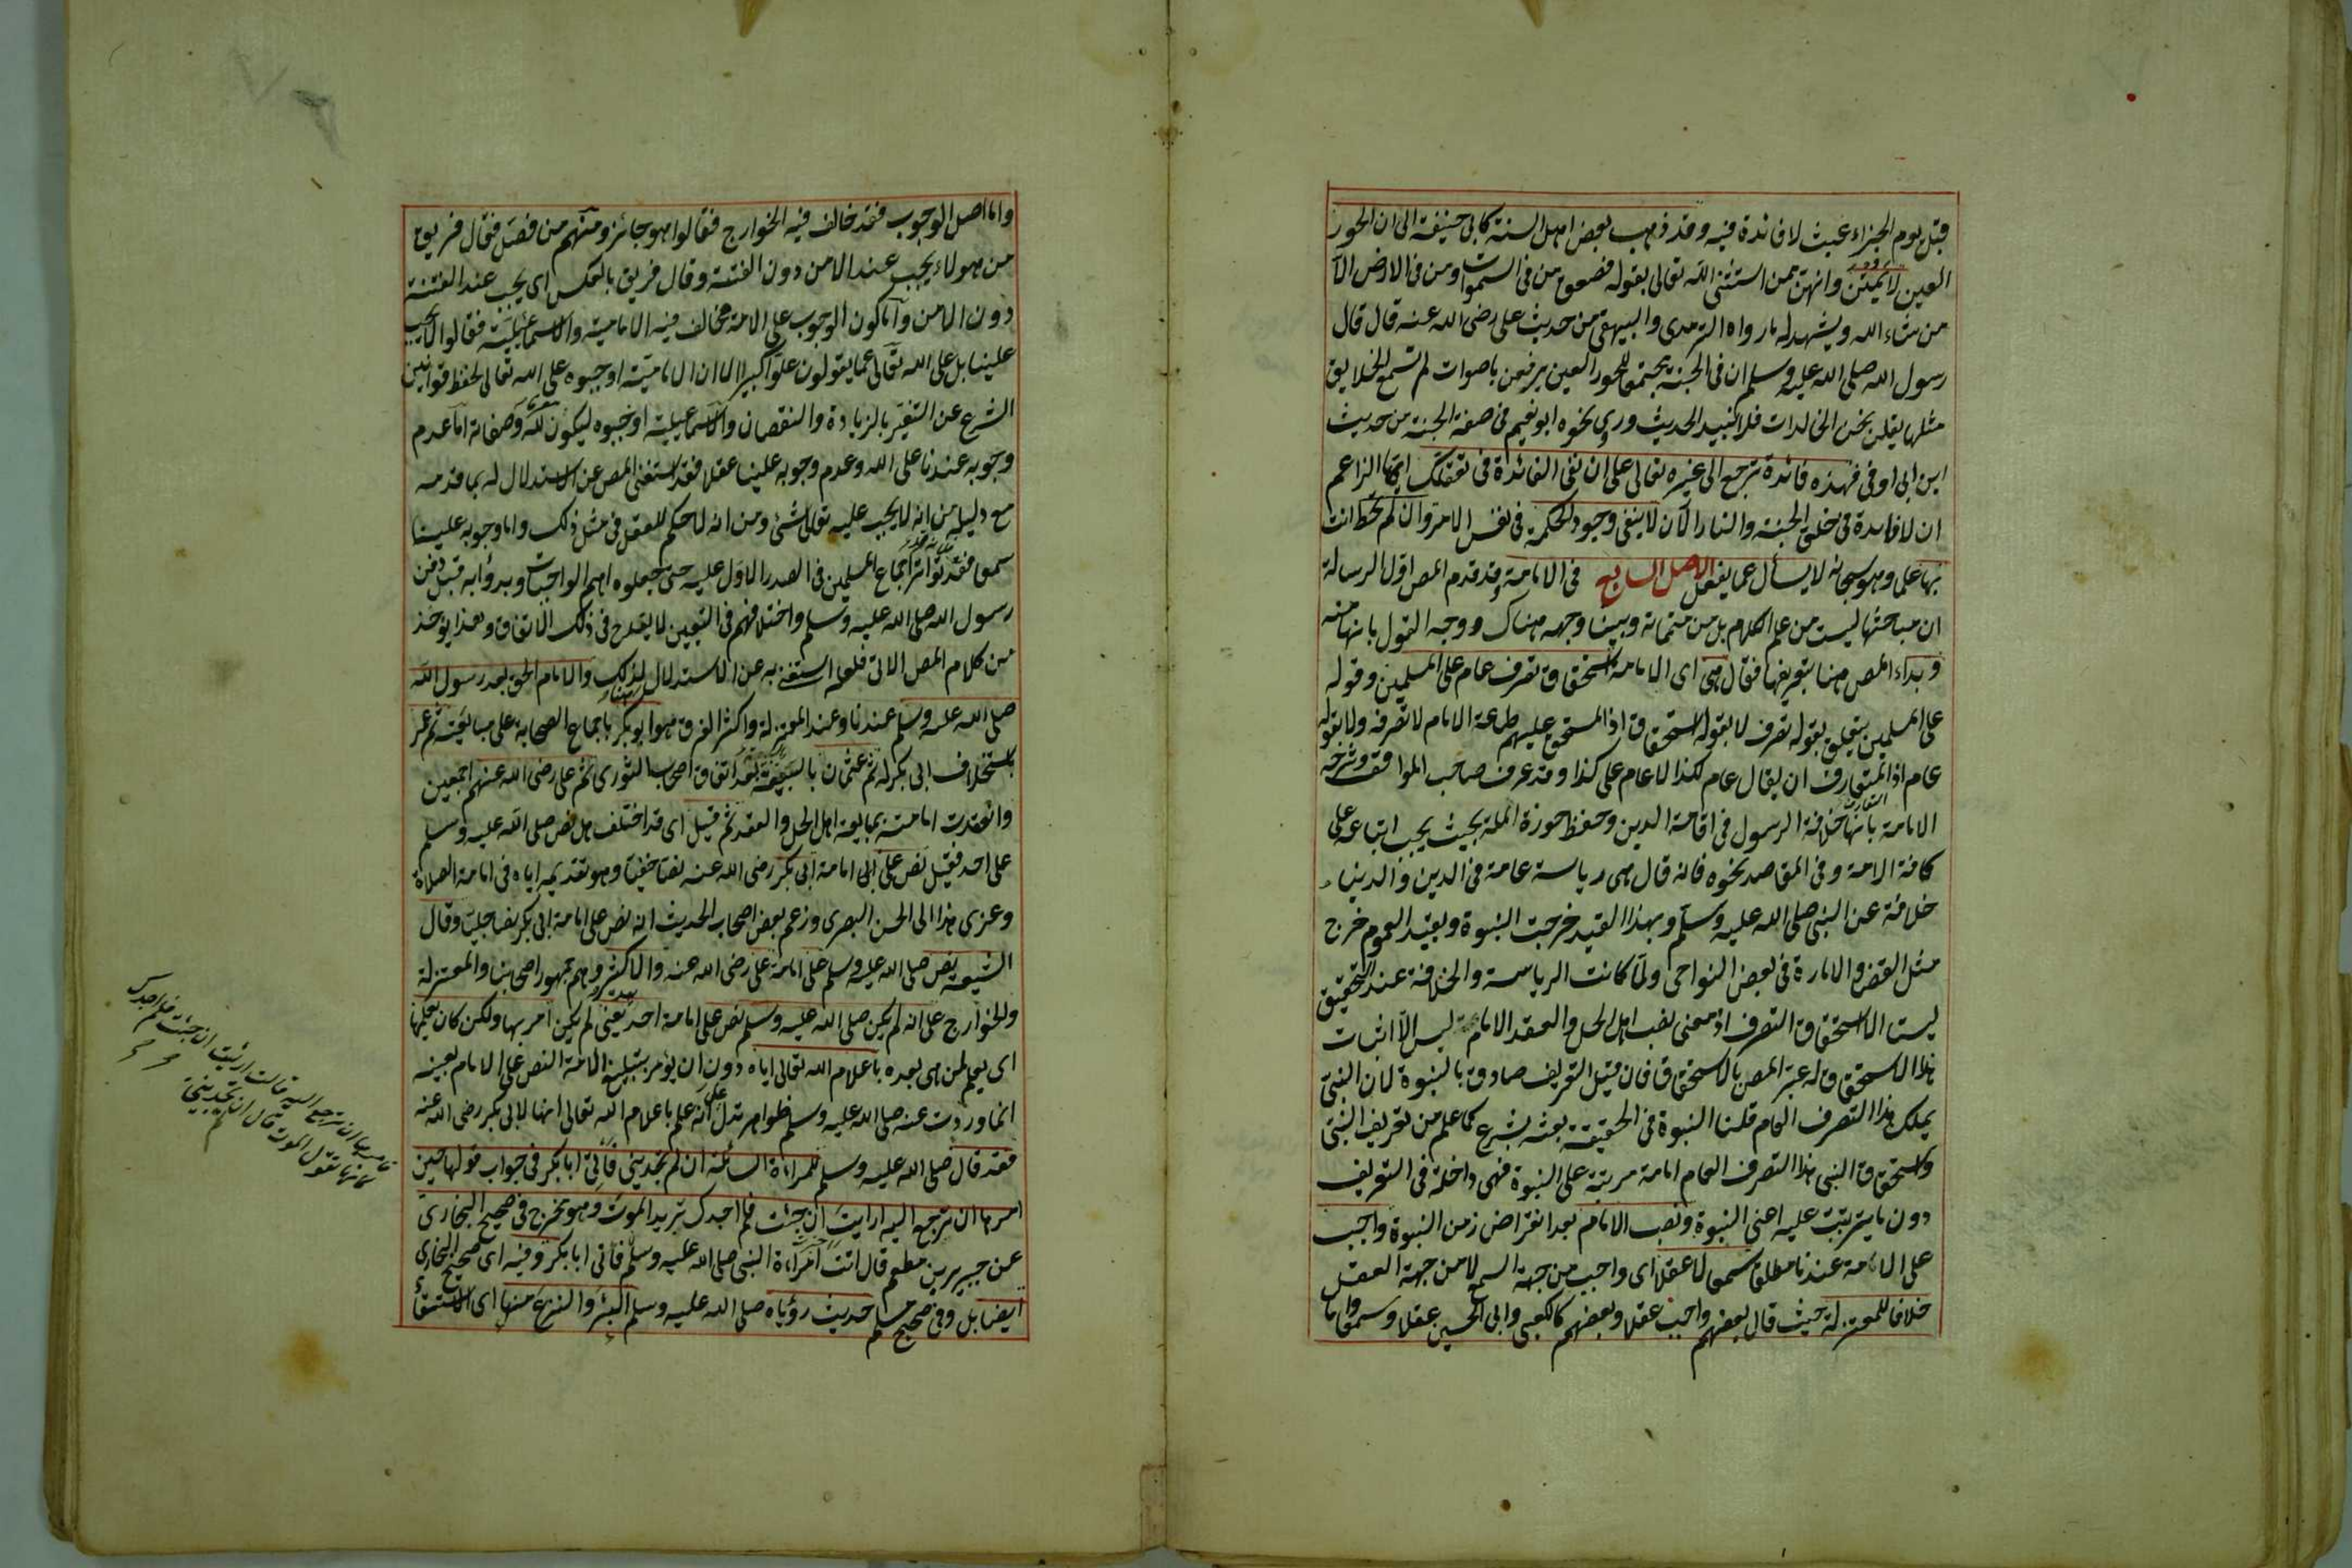 قبل يوم الجزاء عبث لا فائدة فيه وقد ذهب بعض اهل السنة كابى حنيفة الى ان الحور
العين لا يمتن وانهن ممن استثنى الله تعالى بقوله فصعق من فى السموات ومن فى الارض الا
من شاء الله ويشهد له ما رواه الترمذى والبيهقى من حديث على رضى الله عنه قال قال
رسول الله صلى الله عليه وسلم ان فى الجنة مجتمعا للحور العين يرفعن باصوات لم تسمع الخلايق
مثلها يقلن نحن الخالدات فلا نبيد الحديث وروى نحوه ابو نعيم فى صفة الجنة من حديث
ابن ابى اوفى فهذه فائدة ترجع الى غيره تعالى على ان نفى الفائدة فى تعقلك ايها الزاعم
ان لا فايدة فى خلق الجنة والنار الآن لا ينفى وجود الحكمة فى نفس الامر وان لم تحط انت
بها علما وهو سبحانه لا يسأل عما يفعل الاصل السابع فى الامامة وقد قدم المص اول الرسالة
ان مباحثها ليست من علم الكلام بل من متمماته وبينا وجهه هناك ووجه القول بانها منه
وبداء المص هنا بتعريفها فقال هى اى الامامة استحقاق تصرف عام على المسلمين وقوله
على المسلمين يتعلق بقوله تصرف لا بقوله استحقاق اذ المستحق عليهم طاعة الامام لا تصرفه ولا بقوله
عام اذ المتعارف ان يقال عام لكذا لا عام على كذا وقد عرف صاحب المواقف وشرحه
الامامة بانها خلافة الرسول فى اقامة الدين وحفظ حوزة الملة بحيث يجب اتباعه على
كافة الامة وفى المقاصد نحوه فانه قال هى رياسة عامة فى الدين والدنيا
خلافة عن النبى صلى الله عليه وسلم وبهذا القيد خرجت النبوة وبقيد العموم خرج
مثل القضا والامارة فى بعض النواحى ولما كانت الرياسة والخلافة عند التحقيق
ليست الا استحقاق التصرف اذ معنى نصب اهل الحل والعقد الامام ليس الا اثبات
هذا الاستحقاق له عبر المص بالاستحقاق فان قيل التعريف صادق بالنبوة لان النبى
يملك هذا التصرف العام قلنا النبوة فى الحقيقة بعثه بشرع كما علم من تعريف النبى
واستحقاق النبى هذا التصرف العام امامة مرتبة على النبوة فهى داخلة فى التعريف
دون ما يترتبت عليه اعنى النبوة ونصب الامام بعد انقراض زمن النبوة واجب
على الامة عندنا مطلقا سمعا لا عقلا اى واجب من جهة السمع لا من جهة العقل
خلافا للمعتزلة حيث قال بعضهم واجب عقلا وبعضهم كالكعبى وابى الحسين عقلا وسمعا واما
واما اصل الوجوب فقد خالف فيه الخوارج فقالوا هو جائز ومنهم من فصل فقال فريق
من هولاء يجب عند الامن دون الفتنة وقال فريق بالعكس اى يجب عند الفتنة
دون الامن واما كون الوجوب على الامة فخالف فيه الامامية والاسماعيلية فقالوا لا يجب
علينا بل على الله تعالى عما يقولون علوا كبيرا الا ان الامامية اوجبوه على الله تعالى لحفظ قوانين
الشرع عن التغير بالزيادة والنقصان والاسماعيلية اوجبوه ليكون معرفا لله وصفاته اما عدم
وجوبه عندنا على الله وعدم وجوبه علينا عقلا فقد استغنى المص عن الاستدلال له بما قدمه
مع دليله من انه لا يجب عليه تعالى شئ ومن انه لا حكم للعقل فى مثل ذلك واما وجوبه علينا
سمعا فقد تواتر اجماع المسلمين فى الصدر الاول عليه حتى جعلوه اهم الواجبات وبدؤا به قبل دفن
رسول الله صلى الله عليه وسلم واختلافهم فى التعيين لا يقدح فى ذلك الاتفاق وهذا يؤخذ
من كلام المص الاتى فلعله استغنى به عن الاستدلال لذلك هنا والامام الحق بعد رسول الله
صلى الله عليه وسلم عندنا وعند المعتزلة واكثر الفرق هو ابو بكر باجماع الصحابة على مبايعته ثم عمر
باستخلاف ابى بكر له ثم عثمان بالبيعة بعد اتفاق اصحاب الشورى ثم على رضى الله عنهم اجمعين
وانعقدت امامته بمبايعة اهل الحل والعقد ثم قيل اى قد اختلف هل نص صلى الله عليه وسلم
على احد فقيل نص على ابى امامة ابى بكر رضى الله عنه نصا خفيا وهو تقديمه اياه فى امامة الصلاة
وعزى هذا الى الحسن البصرى وزعم بعض اصحاب الحديث انه نص على امامة ابى بكر نصا جليا وقال
الشيعة نص صلى الله عليه وسلم على امامة على رضى الله عنه والاكثر وهم جمهور اصحابنا والمعتزلة
والخوارج على انه لم يكن صلى الله عليه وسلم نص على امامة احد بعده يعنى لم يكن امر بها ولكن كان يعلمها
اى يعلم لمن هى بعده باعلام الله تعالى اياه دون ان يؤمر بتبليغ الامة النص على الامام بعينه
انما وردت عنه صلى الله عليه وسلم ظواهر تدل على انه علم باعلام الله تعالى انها لابى بكر رضى الله عنه
فقد قال صلى الله عليه وسلم للمراءة السائلة ان لم تجدينى فأتى ابا بكر فى جواب قولها حين
امرها ان ترجع اليه ارايت ان جئت فلم اجدك تريد الموت وهو مخرج فى صحيح البخارى
عن جبير بن مطعم قال اتت امراءة النبى صلى الله عليه وسلم فأتى ابا بكر وفيه اى صحيح البخارى
ايضا بل وفى صحيح مسلم حديث رؤياه صلى الله عليه وسلم البئر والنزع منها اى الاستسقاء
فامرها ان ترجع اليه قالت ارئيت ان جئت فلم اجدك
كانها تقول الموت قال ان لم تجدينى